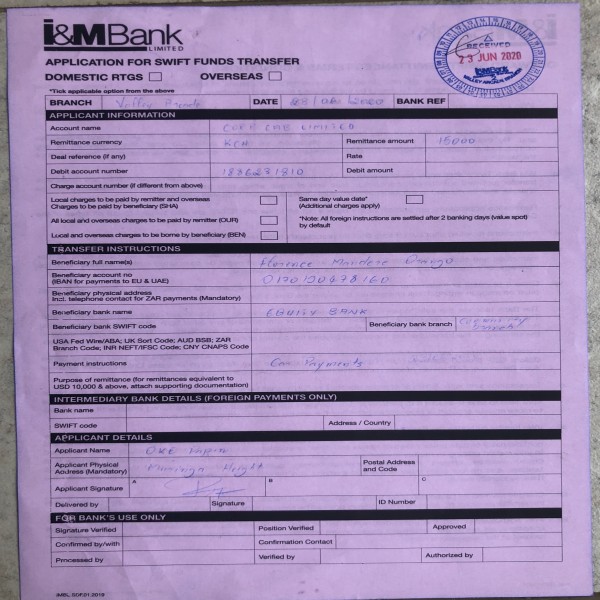 I&M Bank
LIMITED
APPLICATION FOR SWIFT FUNDS TRANSFER
DOMESTIC RTGS OVERSEAS
RECEIVED
23 JUN 2020
I&M Bank
*Tick applicable option from the above
BRANCH Valley DATE BANK REF
APPLICANT INFORMATION
Account name LIMITED
Remittance currency Remittance amount 15000
Deal reference (if any) Rate
Debit account number Debit amount
Charge account number (if different from above)
Local charges to be paid by remitter and overseas
Charges to be paid by beneficiary (SHA)
Same day value date*
(Additional charges apply)
All local and overseas charges to be paid by remitter (OUR)
*Note: All foreign instructions are settled after 2 banking days (value spot)
by default
Local and overseas charges to be borne by beneficiary (BEN)
TRANSFER INSTRUCTIONS
Beneficiary full name(s) Florence
Beneficiary account no
(IBAN for payments to EU & UAE)
Beneficiary physical address
Incl. telephone contact for ZAR payments (Mandatory)
Beneficiary bank name EQUITY BANK
Beneficiary bank SWIFT code Beneficiary bank branch
USA Fed Wire/ABA; UK Sort Code; AUD BSB; ZAR
Branch Code; INR NEFT/IFSC Code; CNY CNAPS Code
Payment instructions Payments
Purpose of remittance (for remittances equivalent to
USD 10,000 & above, attach supporting documentation)
INTERMEDIARY BANK DETAILS (FOREIGN PAYMENTS ONLY)
Bank name
SWIFT code Address / Country
APPLICANT DETAILS
Applicant Name
Applicant Physical
Address (Mandatory) Height
Postal Address
and Code
Applicant Signature A B C
Delivered by Signature ID Number
FOR BANK'S USE ONLY
Signature Verified Position Verified Approved
Confirmed by/with Confirmation Contact
Processed by Verified by Authorized by